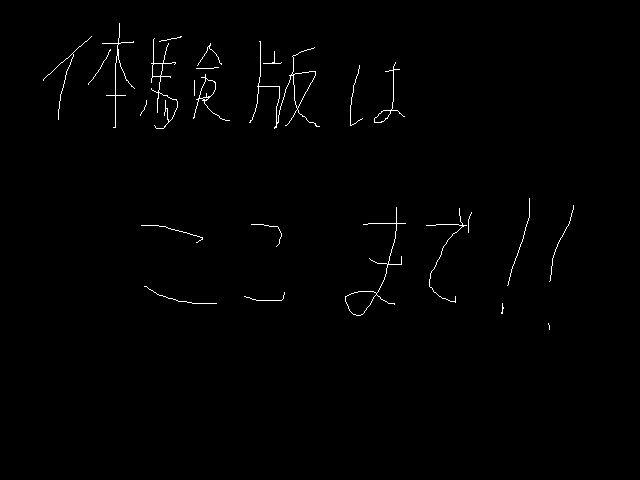 体験版は
ここまで!!